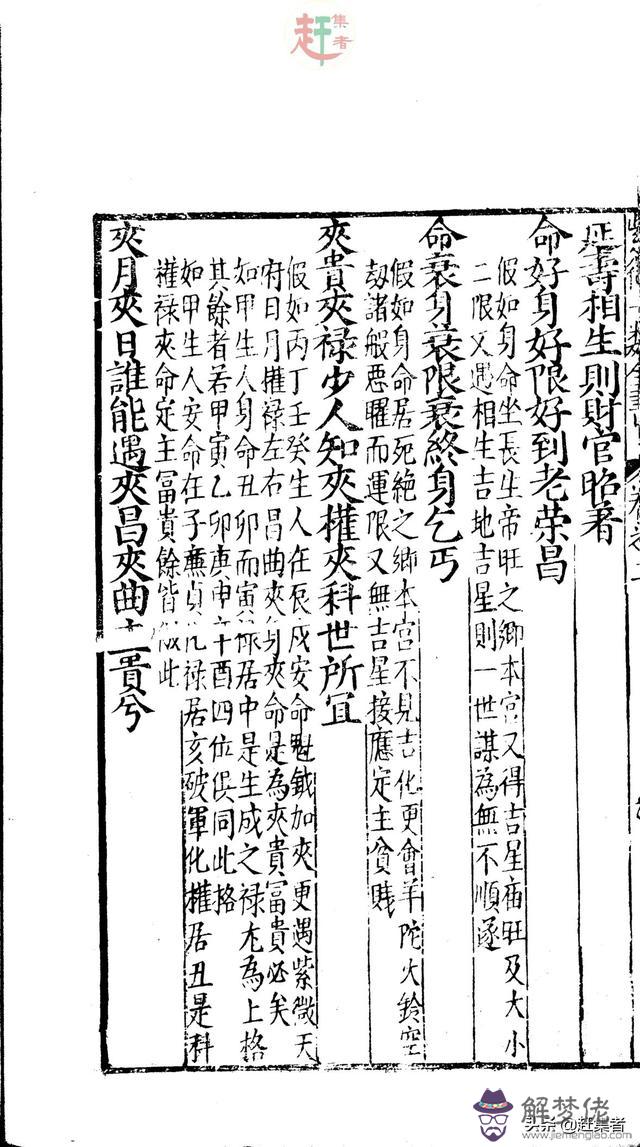 赶集者
延壽相生則財官昭著
命好身好限好到老荣昌
假如身命坐長生帝旺之鄉本宫又得吉星庙旺及大小
二限又遇相生吉地吉星則一世謀為無不順遂
命衰身衰限衰終身乞丐
假如身命居死絶之鄉本宫不見吉化更會羊陀火鈴空
劫諸般惡曜而運限又無吉星接應定主貧賎
夾貴夾禄少人知夾權夾科世所宜
假如丙丁壬癸生人在辰戌安命魁鉞加夾更遇紫微天
府日月權禄左右昌曲夾身夾命是為夾貴冨貴必矣
如甲生人身命丑卯而寅禄居中是生成之禄尤為上格
其餘者若甲寅乙卯庚申辛酉四位俱同此格
如甲生人安命在子廉貞化禄居亥破軍化權居丑是科
權禄夾命定主冨貴餘皆倣此
夾月夾日誰能遇夾昌夾曲主貴兮
解梦佬
www.jiemenglao.com
头条@赶集者